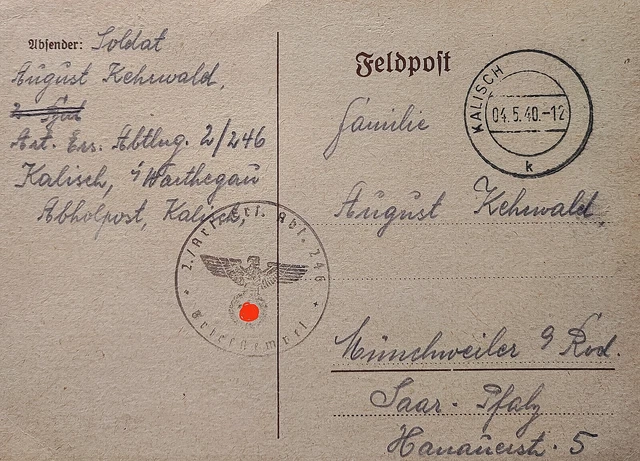 Absender: Soldat
August Kehrwald,
Art. Ers. Abtlng. 2/246
Kalisch, Warthegau
Abholpost, Kalisch,
Feldpost
KALISCH
04.5.40.-12
k
Familie
August Kehrwald,
2./Art. Ers. Abt. 246
Briefstempel
Münchweiler a Rod.
Saar-Pfalz
Hanauerstr. 5